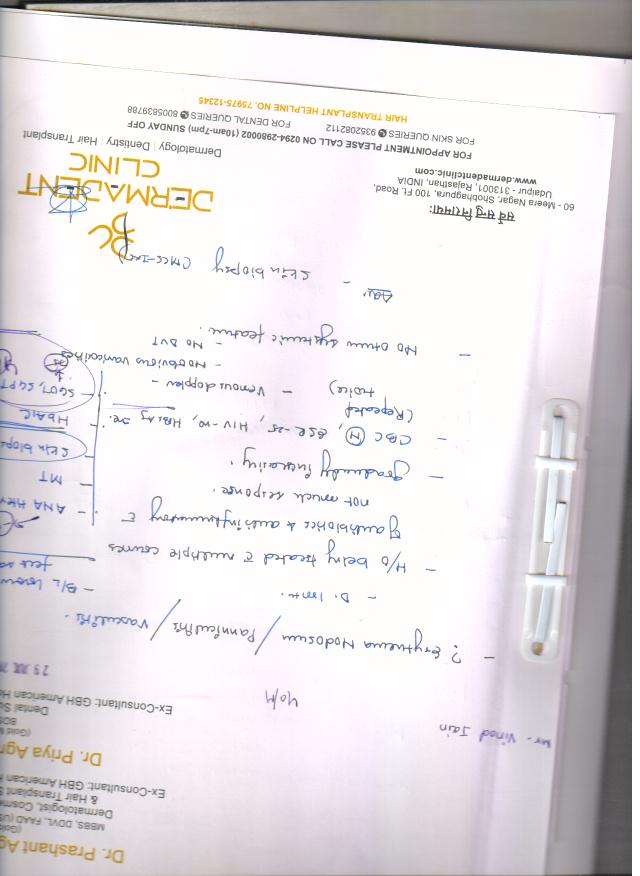 Dr. Prashant Ag
(Gold
MBBS, DDVL, FAAD (US
Dermatologist, Cosme
& Hair Transplant S
Ex-Consultant: GBH American H
Dr. Priya Agr
(Gold M
BDS
Dental Su
Ex-Consultant: GBH American Ho
Mr. Vinod Jain
40/M
- ? Erythema Nodosum / Panniculitis / Vasculitis.
- D. 1 mth.
- B/L lower
- H/o being treated c multiple courses
of antibiotics & antiinflammatory c
not much response.
- ANA
- MT
- Gradually increasing.
- Skin biops
- CBC (N), ESR-25, HIV-ve, HBsAg -ve.
- HbA1C
(Repeated
twice)
- Venous doppler -
- SGOT, SGPT
No obvious varicosities
- No DVT
- No other systemic feature.
Adv - Skin biopsy
DC
DERMADENT
CLINIC
Dermatology | Dentistry | Hair Transplant
सर्वे सन्तु निरामया:
60 - Meera Nagar, Shobhagpura, 100 Ft. Road,
Udaipur - 313001, Rajasthan, INDIA
www.dermadentclinic.com
FOR APPOINTMENT PLEASE CALL ON 0294-2980002 (10am-7pm) SUNDAY OFF
FOR SKIN QUERIES 9352082112 FOR DENTAL QUERIES 8005839788
HAIR TRANSPLANT HELPLINE NO. 75975-12345